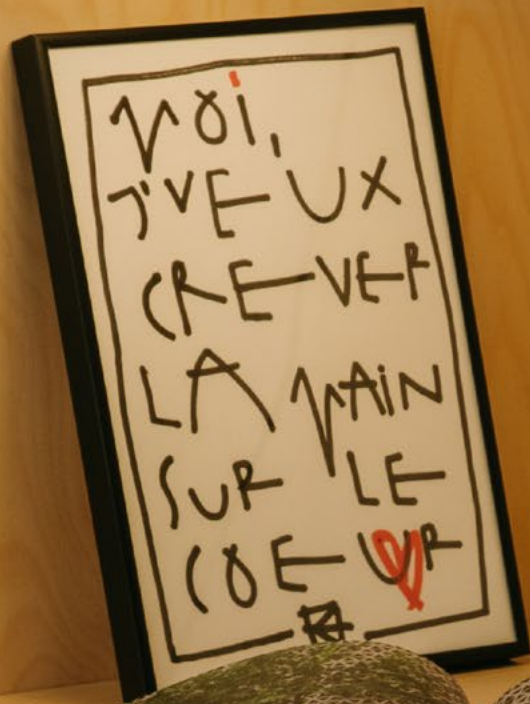 MOi,
J'VEUX
CREVER
LA MAiN
SUR LE
COEUR